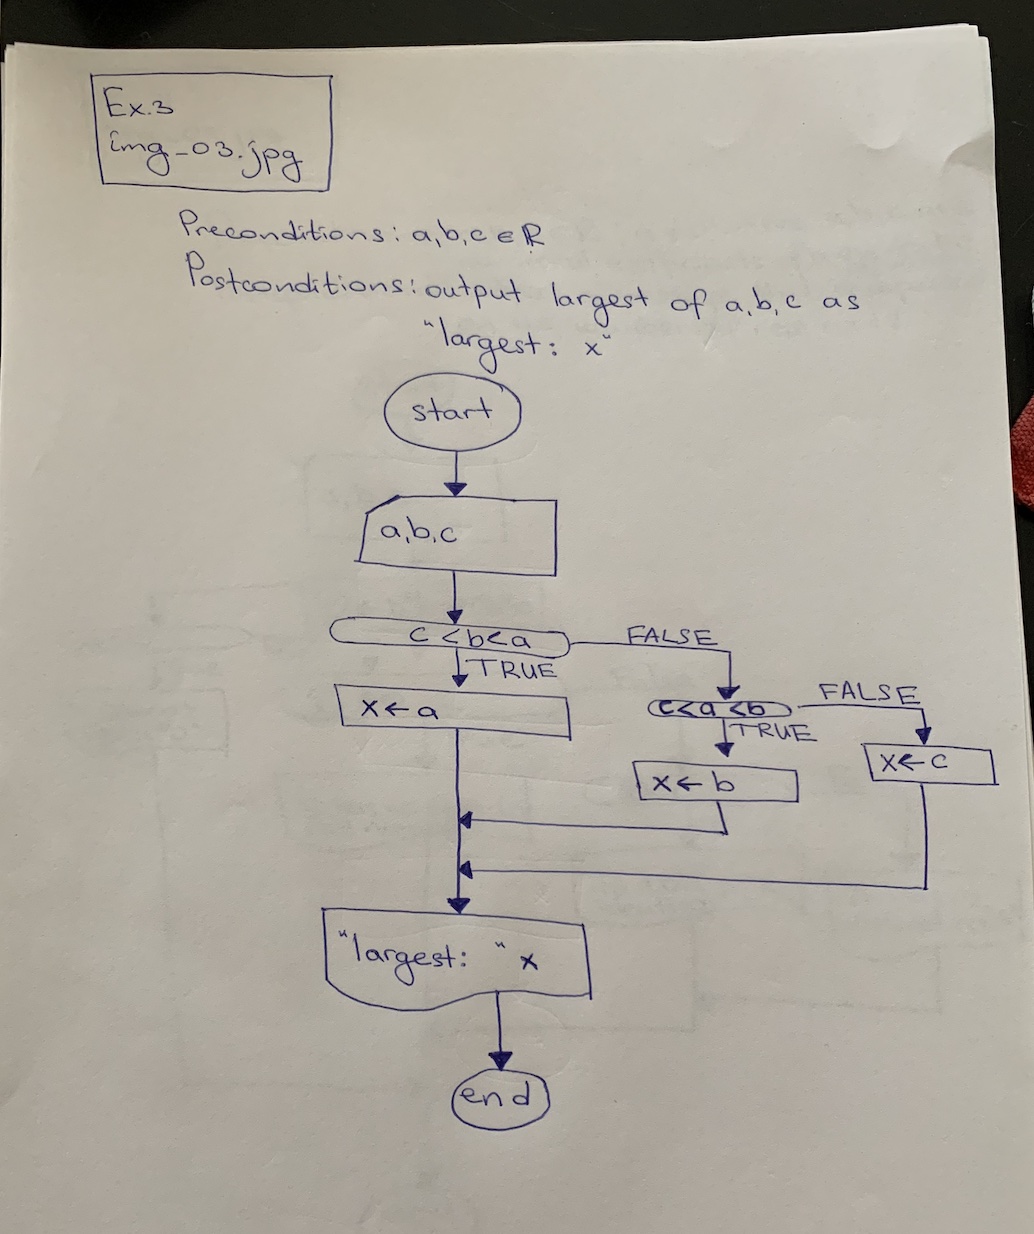 Ex.3
img_03.jpg
Preconditions: a,b,c ∈ ℝ
Postconditions: output largest of a,b,c as
"largest: x"
start
a,b,c
c < b < a
FALSE
TRUE
x ← a
c < a < b
FALSE
TRUE
x ← b
x ← c
"largest: " x
end